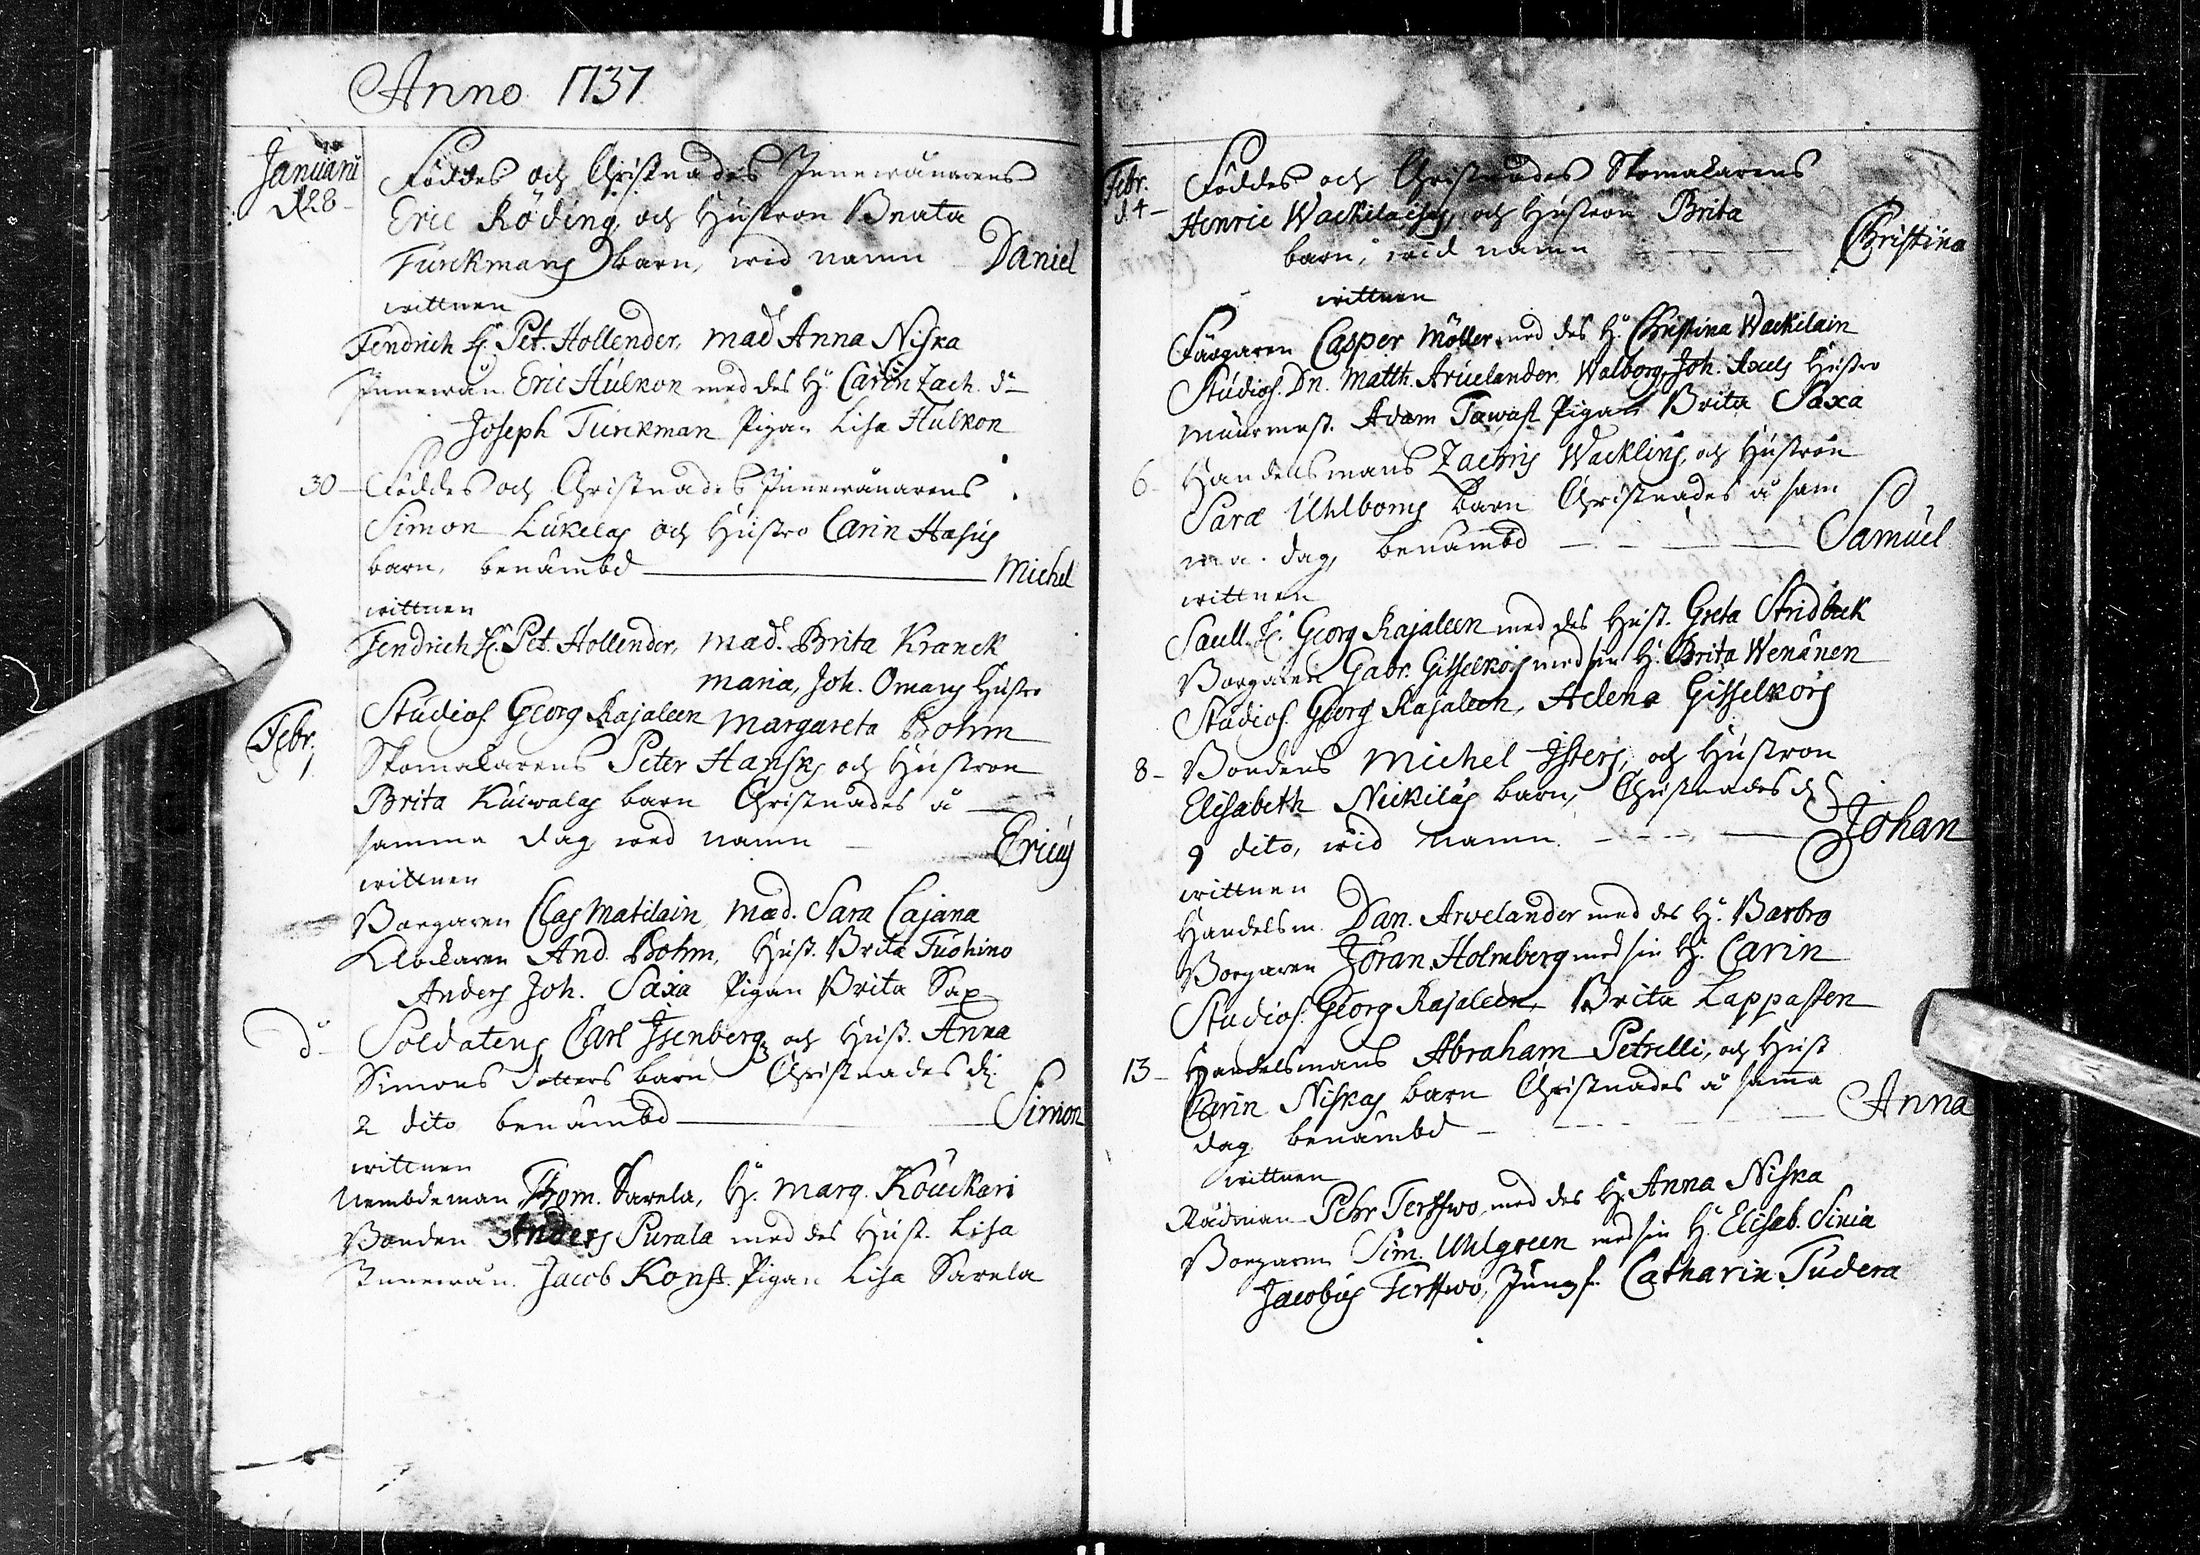 Anno 1737
Januarii
d 28 - Föddes och Christnades Innewånarens
Eric Röding, och Hustron Beata
Turckmans barn, wid namn Daniel
wittnen
Fendrich H. Pet. Hollender, Mad Anna Niska
Innewån. Eric Hulkon med des H. Carin Zach. dr
Joseph Turckman Pigan Lisa Hulkon
30 - Föddes och Christnades Innewånarens
Simon Lukelas och Hustro Carin Hasus
barn, benämbd Michel
wittnen
Fendrich H. Pet. Hollender, Mad. Brita Kranck
Maria, Joh. Omans Hustro
Studios. Georg Rajaleen Margareta Bohm
Febr. 1 Skomakarens Peter Hansks och Hustron
Brita Kuiwalas barn Christnades å
samma dag, wed namn Ericus
wittnen
Borgaren Clas Matilain, Mad. Sara Cajana
Klockaren And. Bohm, Hust. Brita Tuohino
Anders Joh. Saxa Pigan Brita Sax
d - Soldatens Carl Isenberg och Hust. Anna
Simons dotters barn Christnades d.
2 dito benämbd Simon
wittnen
Nembdeman Thom. Sarela, H. Marg. Kouckari
Bonden Anders Purala med des Hust. Lisa
Innewån. Jacob Konst. Pigan Lisa Sarela
Febr.
d. 4 - Föddes och Christnades Skomakarens
Henric Wackilains, och Hustron Brita
barn, wid namn Christina
wittnen
Färgaren Casper Möller med des H. Christina Wackilain
Studios. Dn. Matth. Arvelander. Walborg, Joh. Hustro
Muurmest. Adam Tawast Pigan Brita Saxa
6 - Handelsmans Zachris Wacklins, och Hustron
Sara Uhlboms barn Christnades å sam
ma dag, benämbd Samuel
wittnen
Saell. H. Georg Rajaleen med des Hust. Greta Stridbeck
Borgaren Gabr. Gisselkors med sin H. Brita Wenänen
Studios. Georg Rajaleen, Helena Gisselkors
8 - Bondens Michel Isters, och Hustron
Elisabeth Neikilas barn, Christnades d.
9 dito, wid namn Johan
wittnen
Handelsm. Dan. Arvelander med des H. Barbro
Borgaren Jöran Holmberg med sin H. Carin
Studios. Georg Rajaleen, Brita Lappassen
13 - Handelsmans Abraham Petrelli, och Hust
Carin Niskas barn Christnades å samma
dag benämbd Anna
wittnen
Rådman Pehr Tersswo, med des H. Anna Niska
Borgaren Sim. Uhlgreen med sin H. Elisab. Siria
Jacobus Tersswo, Jungf. Catharin Tudera